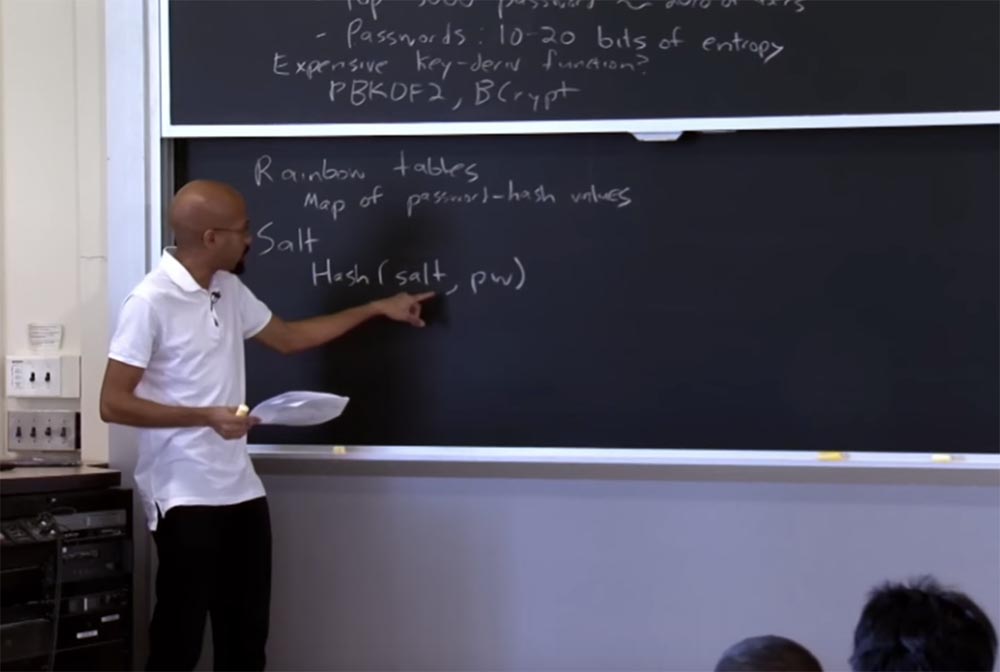 - Top 5000 password ~ 20% of users
- Passwords: 10-20 bits of entropy
Expensive key-deriv function?
PBKDF2, BCrypt
Rainbow tables
Map of password-hash values
Salt
Hash(salt, pw)